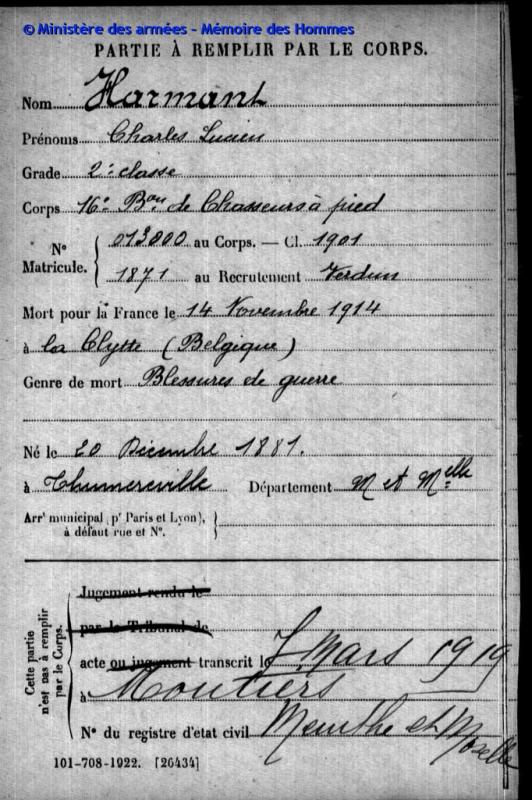 © Ministère des armées - Mémoire des Hommes
PARTIE À REMPLIR PAR LE CORPS.
Nom Harmant
Prénoms Charles Lucien
Grade 2e classe
Corps 16e Bon de Chasseurs à pied
N° Matricule. { 013800 au Corps. — Cl. 1901
1871 au Recrutement Verdun
Mort pour la France le 14 Novembre 1914
à la Clytte (Belgique)
Genre de mort Blessures de guerre
Né le 20 Décembre 1881.
à Thumereville Département M et Melle
Arrt municipal (pr Paris et Lyon),
à défaut rue et N°.
Cette partie n'est pas à remplir par le Corps.
Jugement rendu le
par le Tribunal de
acte ou jugement transcrit le 7 Mars 1919
à Moutiers
N° du registre d'état civil Meurthe et Moselle
101-708-1922. [26434]